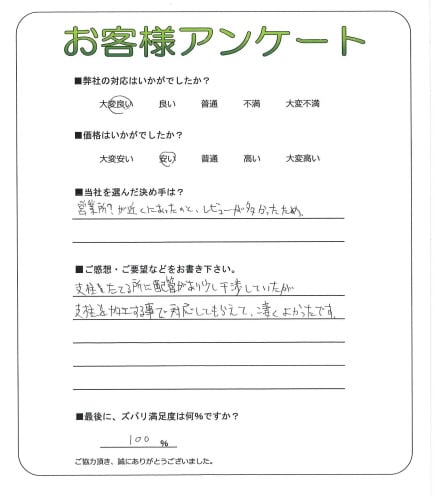 お客様アンケート
■弊社の対応はいかがでしたか？
大変良い 良い 普通 不満 大変不満
■価格はいかがでしたか？
大変安い 安い 普通 高い 大変高い
■当社を選んだ決め手は？
営業所？が近くにあったのと、レビューが多かったため。
■ご感想・ご要望などをお書き下さい。
支柱をたてる所に配管があり少し干渉していたが
支柱を加工する事で対応してもらえて、凄くよかったです。
■最後に、ズバリ満足度は何%ですか？
100 %
ご協力頂き、誠にありがとうございました。